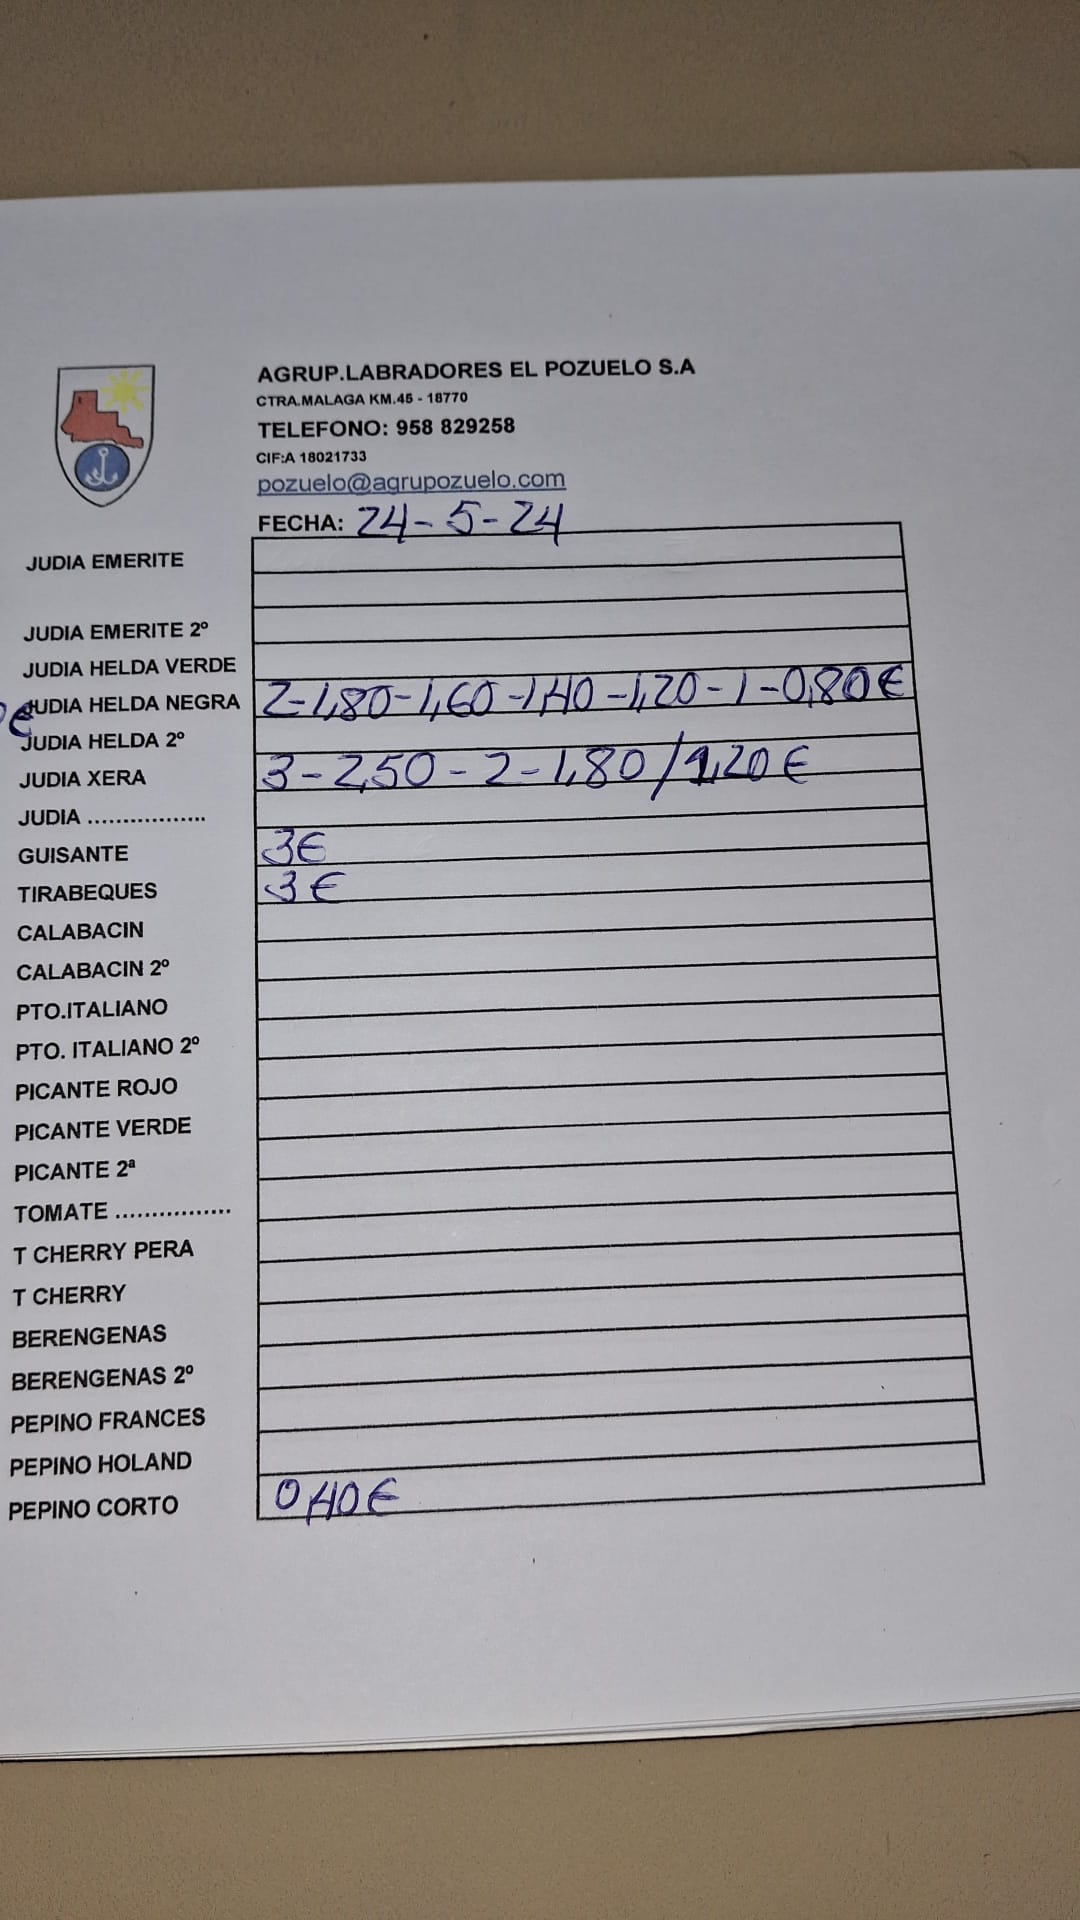 AGRUP.LABRADORES EL POZUELO S.A
CTRA.MALAGA KM.45 - 18770
TELEFONO: 958 829258
CIF:A 18021733
pozuelo@agrupozuelo.com
FECHA: 24-5-24
JUDIA EMERITE
JUDIA EMERITE 2º
JUDIA HELDA VERDE
JUDIA HELDA NEGRA 2-1,80-1,60-1,40-1,20-1-0,80€
€
JUDIA HELDA 2º
JUDIA XERA 3-2,50-2-1,80/1,20€
JUDIA .................
GUISANTE 3€
TIRABEQUES 3€
CALABACIN
CALABACIN 2º
PTO.ITALIANO
PTO. ITALIANO 2º
PICANTE ROJO
PICANTE VERDE
PICANTE 2ª
TOMATE ................
T CHERRY PERA
T CHERRY
BERENGENAS
BERENGENAS 2º
PEPINO FRANCES
PEPINO HOLAND
PEPINO CORTO 0,40€